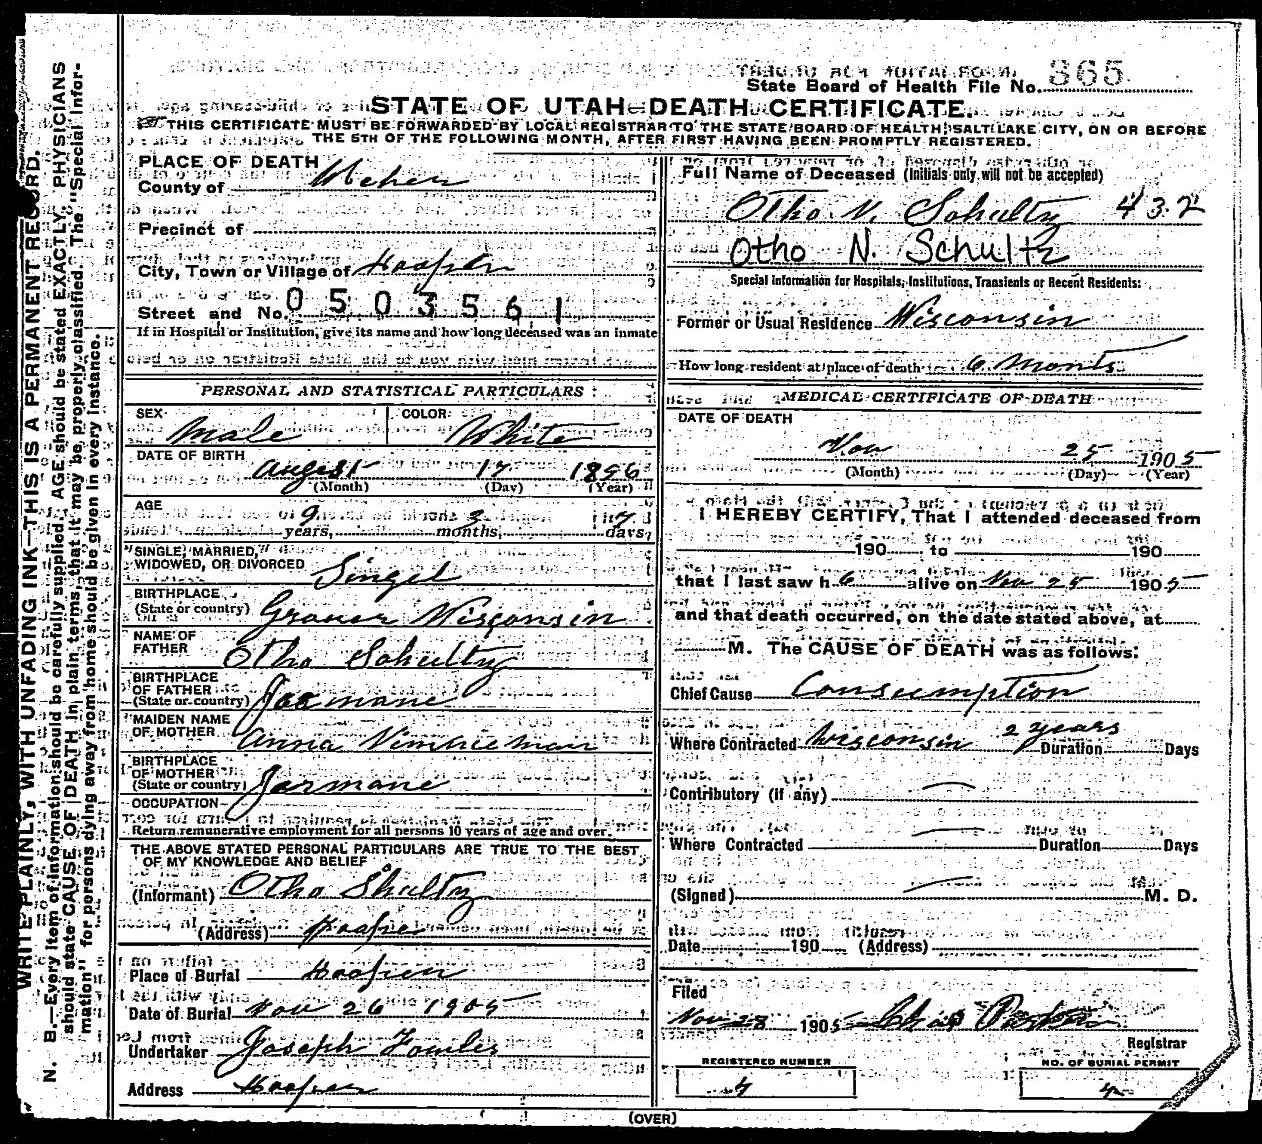 State Board of Health File No. 365
STATE OF UTAH—DEATH CERTIFICATE.
THIS CERTIFICATE MUST BE FORWARDED BY LOCAL REGISTRAR TO THE STATE BOARD OF HEALTH, SALT LAKE CITY, ON OR BEFORE
THE 5TH OF THE FOLLOWING MONTH, AFTER FIRST HAVING BEEN PROMPTLY REGISTERED.
WRITE PLAINLY, WITH UNFADING INK—THIS IS A PERMANENT RECORD.
N. B.—Every item of information should be carefully supplied. AGE should be stated EXACTLY. PHYSICIANS
should state CAUSE OF DEATH in plain terms, that it may be properly classified. The "Special Infor-
mation" for persons dying away from home should be given in every instance.
PLACE OF DEATH
County of Weber
Precinct of
City, Town or Village of Hooper
Street and No. 0503561
If in Hospital or Institution, give its name and how long deceased was an inmate
PERSONAL AND STATISTICAL PARTICULARS
SEX Male COLOR White
DATE OF BIRTH August 17 1896
(Month) (Day) (Year)
AGE 9 years, 3 months, days,
SINGLE, MARRIED,
WIDOWED, OR DIVORCED Singel
BIRTHPLACE
(State or country) Wisconsin
NAME OF
FATHER Otho Schultz
BIRTHPLACE
OF FATHER
(State or country) Jarmane
MAIDEN NAME
OF MOTHER Anna
BIRTHPLACE
OF MOTHER
(State or country) Jarmane
OCCUPATION
Return remunerative employment for all persons 10 years of age and over.
THE ABOVE STATED PERSONAL PARTICULARS ARE TRUE TO THE BEST
OF MY KNOWLEDGE AND BELIEF
(Informant) Otho Shultz
(Address) Hooper
Place of Burial Hooper
Date of Burial Nov 26 1905
Undertaker Joseph Fowles
Address Hooper
Full Name of Deceased (Initials only will not be accepted)
Otho N. Schultz 432
Otho N. Schultz
Special Information for Hospitals, Institutions, Transients or Recent Residents:
Former or Usual Residence Wisconsin
How long resident at place of death 6 Monts
MEDICAL CERTIFICATE OF DEATH
DATE OF DEATH
Nov 25 1905
(Month) (Day) (Year)
I HEREBY CERTIFY, That I attended deceased from
190 to 190
that I last saw h alive on Nov 25 1905
and that death occurred, on the date stated above, at
M. The CAUSE OF DEATH was as follows:
Chief Cause Consumption
Where Contracted Wisconsin 2 years Duration Days
Contributory (if any)
Where Contracted Duration Days
(Signed) M. D.
Date 190 (Address)
Filed
Nov 28 1905
Registrar
REGISTERED NUMBER
4
NO. OF BURIAL PERMIT
4
(OVER)